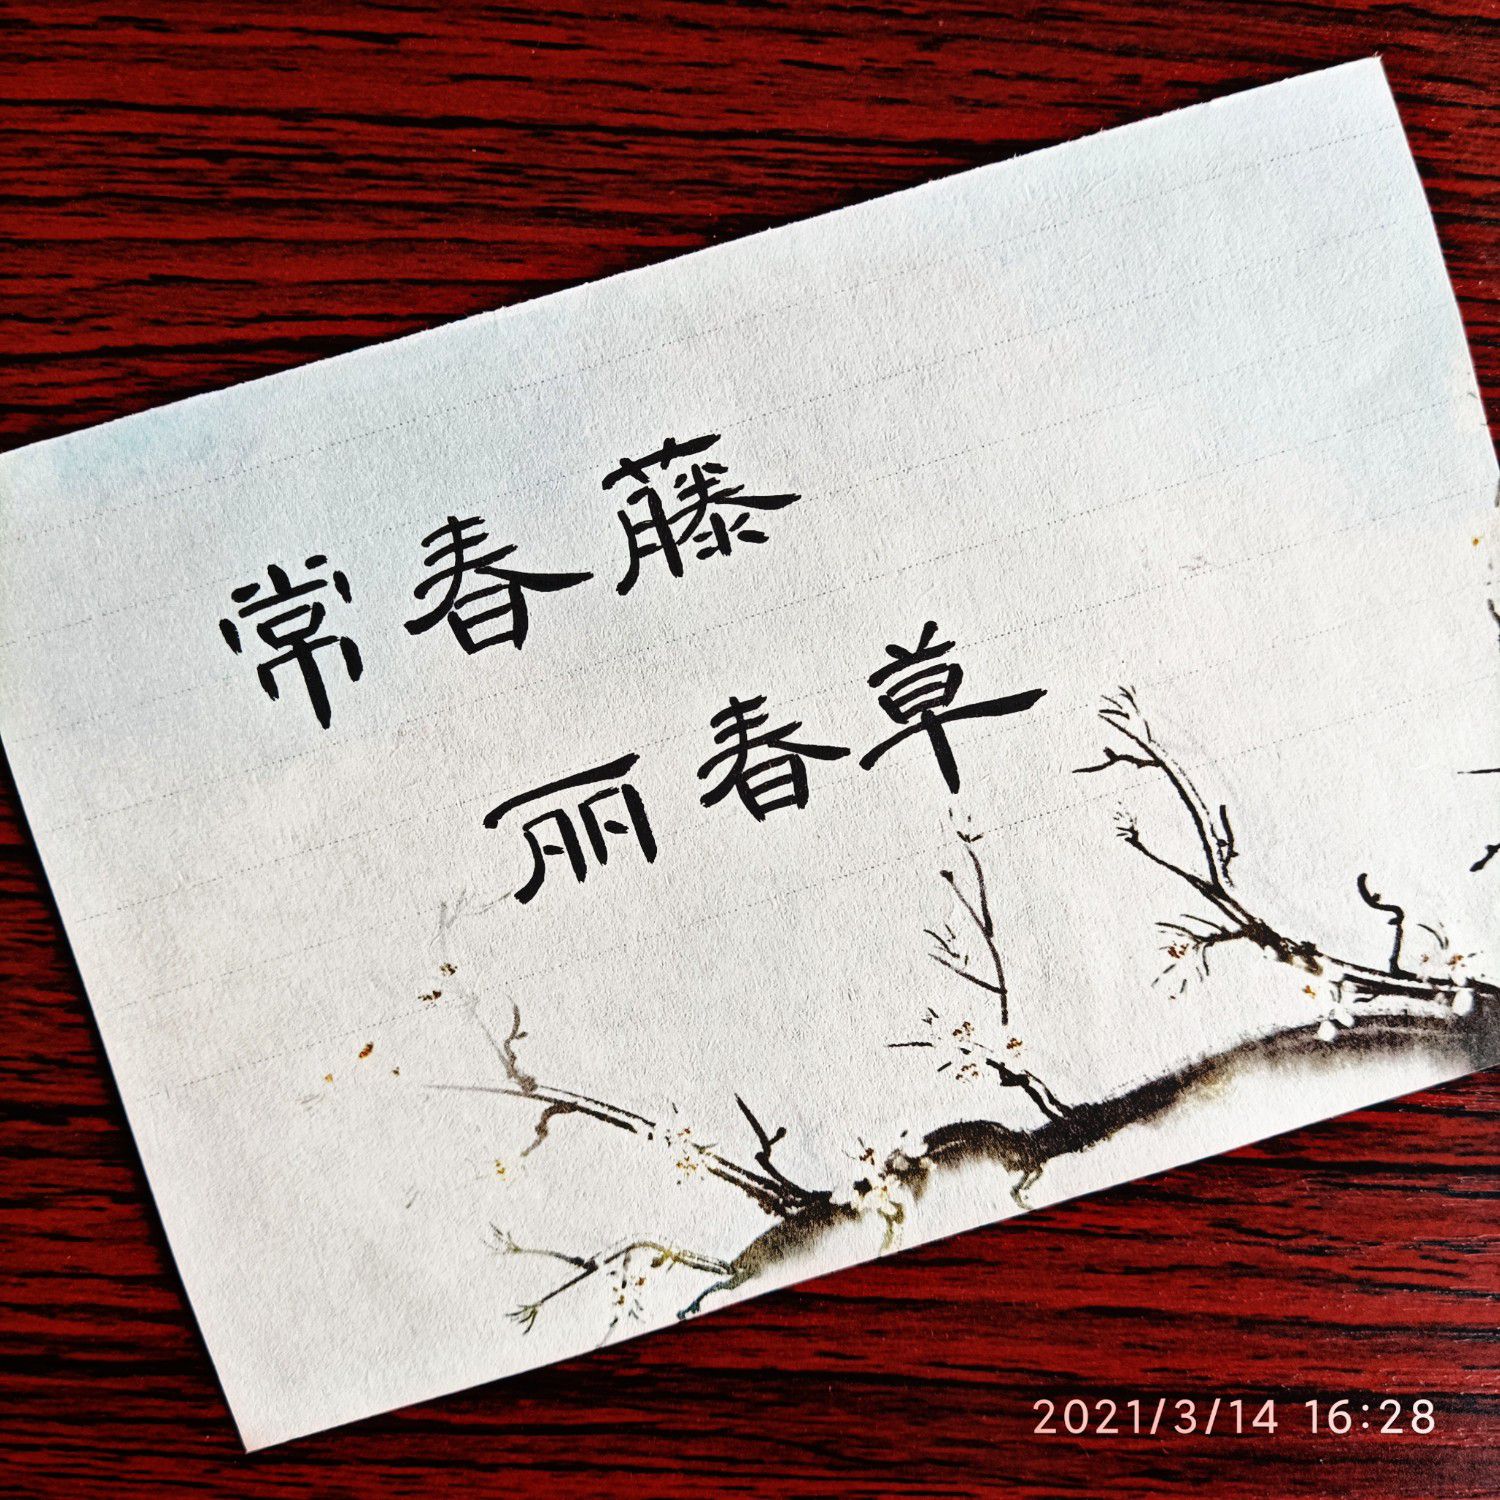 常春藤
丽春草
2021/3/14 16:28